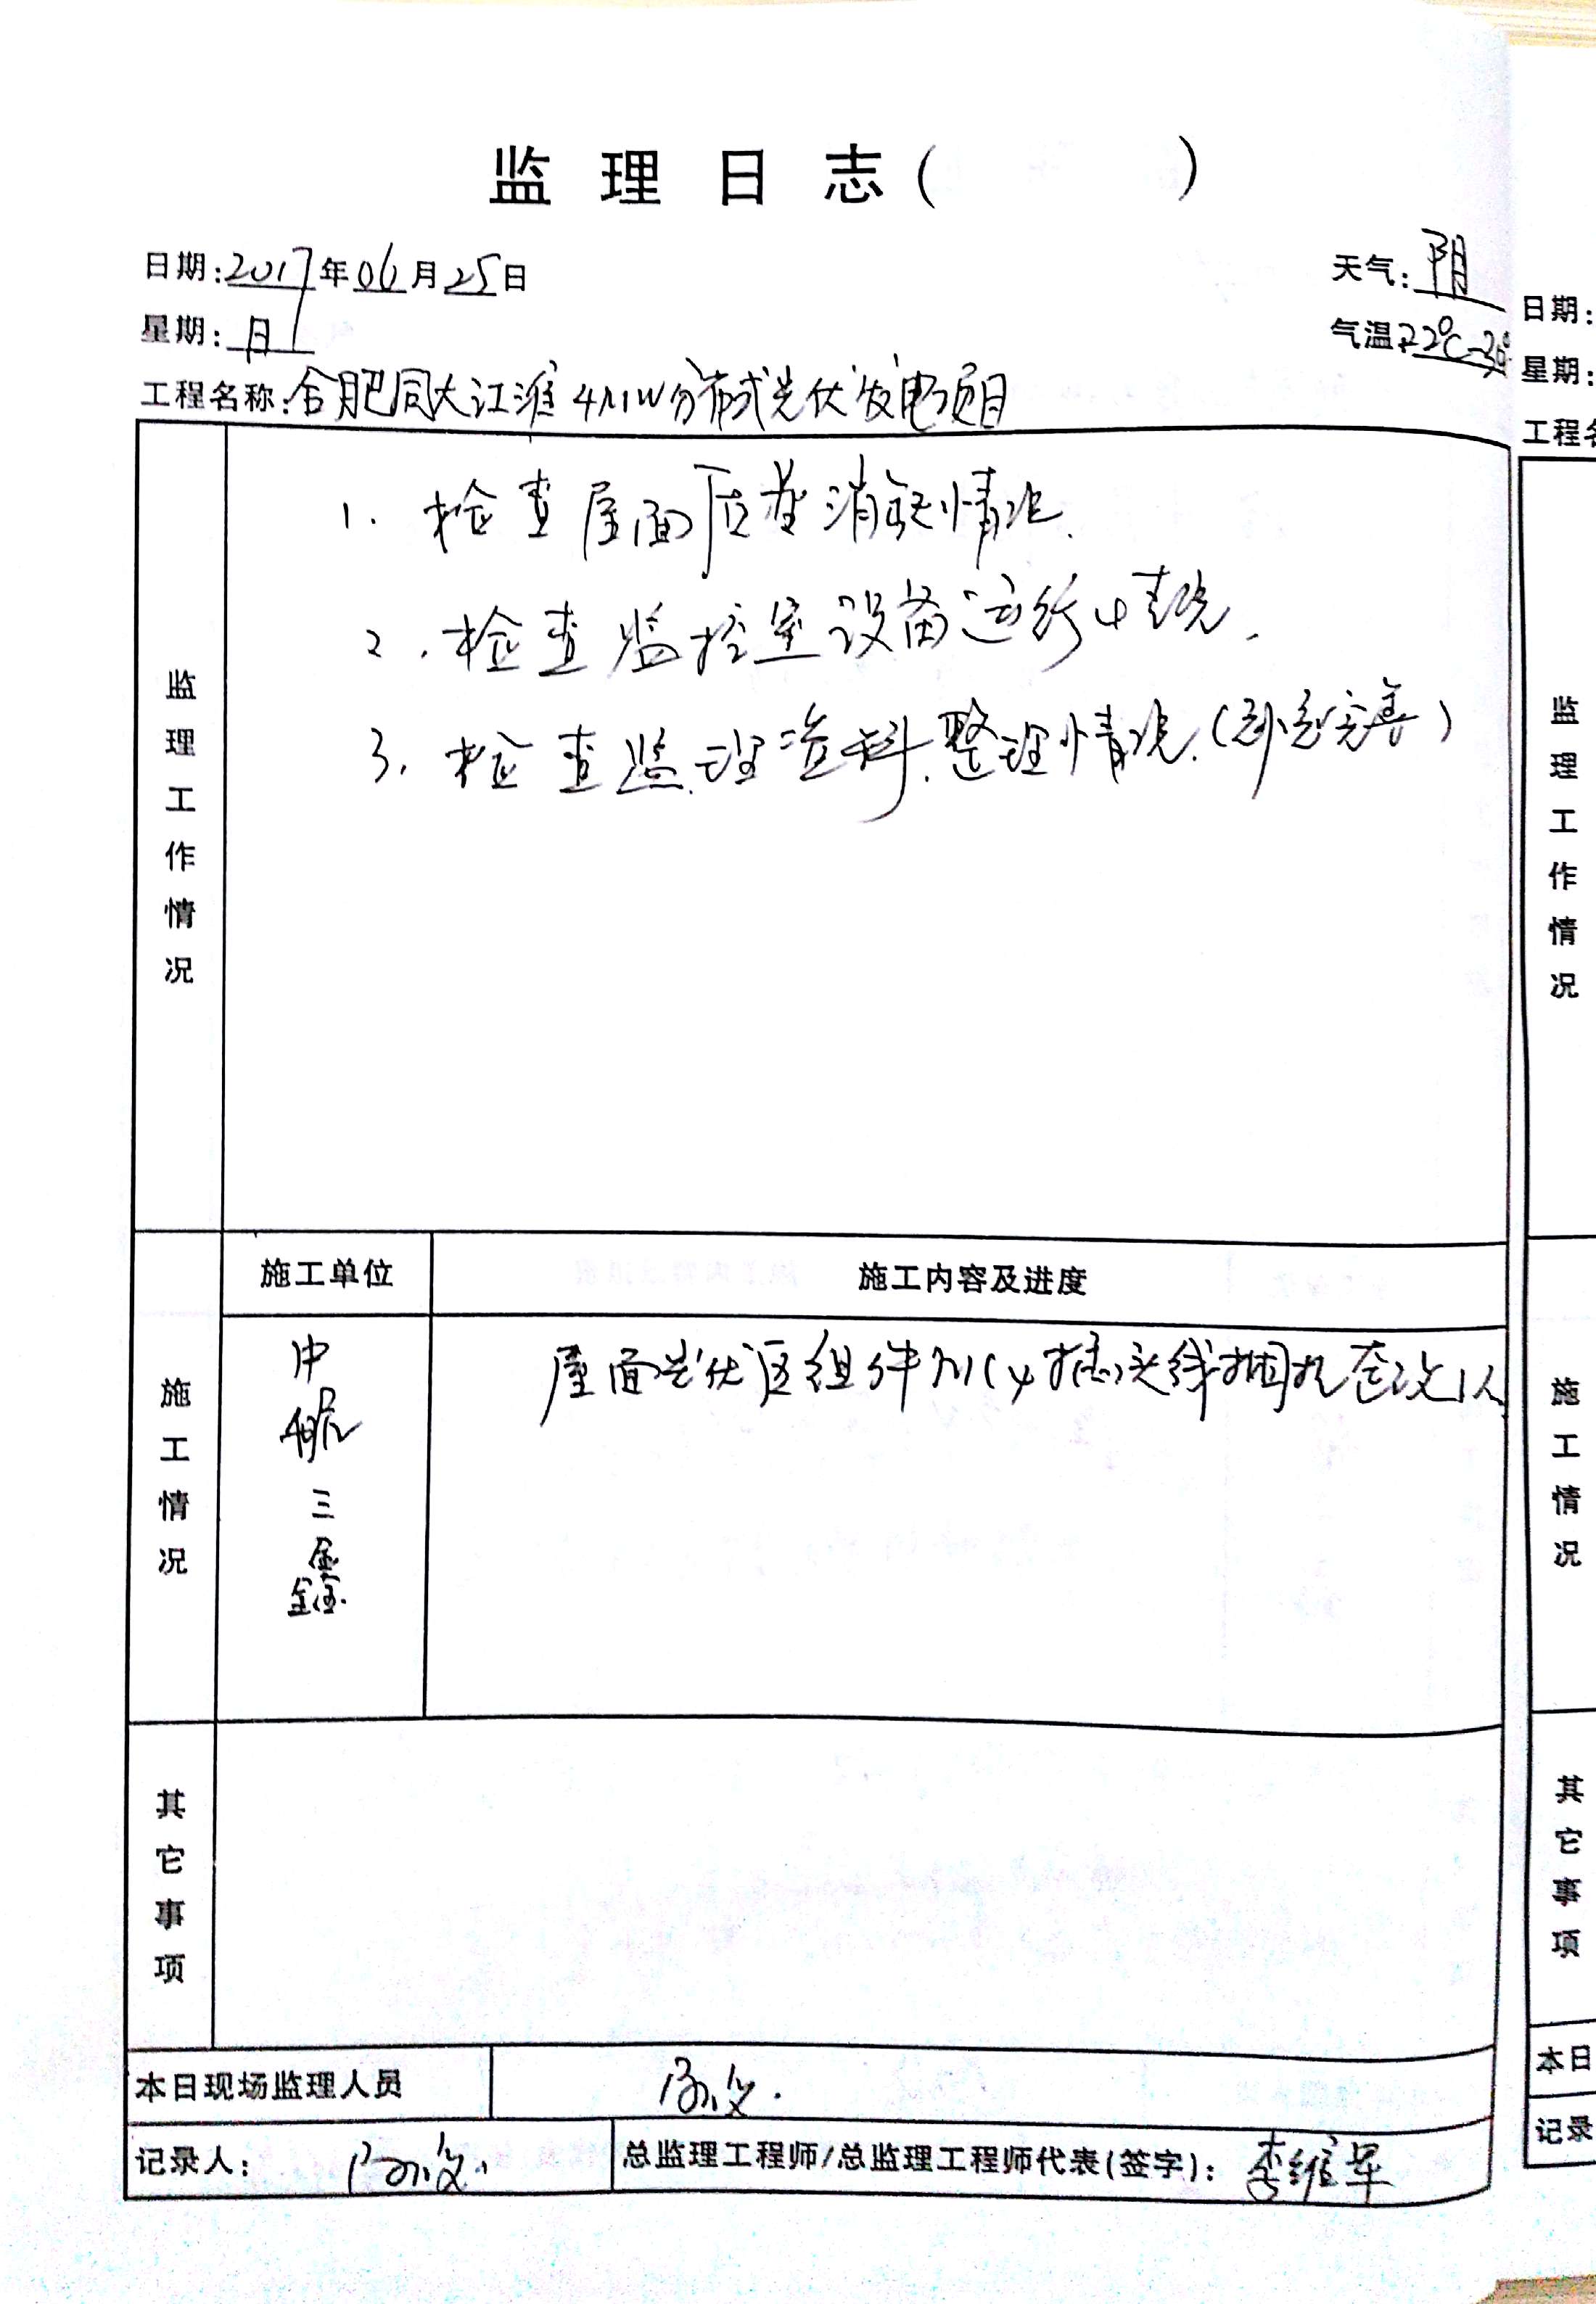 监理日志( )
日期:2017年06月25日
天气:阴
星期:日
气温:22℃-30
工程名称:合肥同大江淮4MW分布式光伏发电项目
监理工作情况
1. 检查屋面质量消缺情况.
2. 检查监控室设备运行情况.
3. 检查监理资料整理情况.(补充完善)
施工单位
施工内容及进度
施工情况
中航三鑫
屋面光伏区组件MC4插头线捆扎整改1人
其它事项
本日现场监理人员
记录人:
总监理工程师/总监理工程师代表(签字): 李维军
日期:
星期:
工程名
监理工作情况
施工情况
其它事项
本日
记录